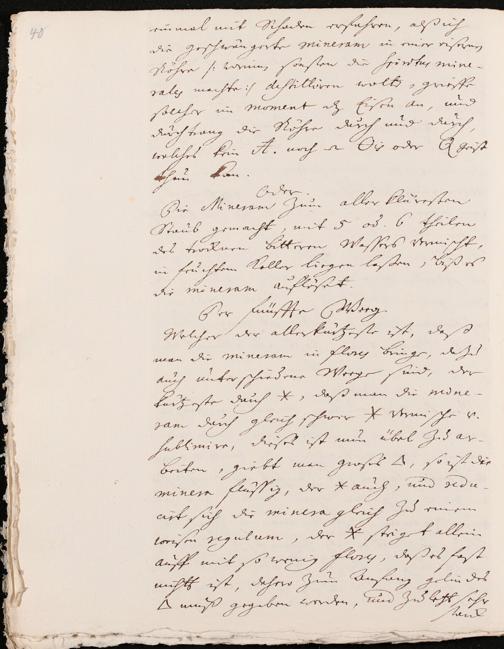 40
einmal mit Schaden erfahren, alß ich
die geschwängerte mineram in einer eisernen
Röhre /: worinn sonsten die spiritus mine-
rales machte :/ destilliren wolte, grieffe
solcher im moment das Eisen an, und
durchtrang die Röhre durch und durch,
welches kein noch oder
thun kan.
Oder.
Die Mineram zum aller kläresten
Staub gemacht, mit 5 od. 6 theilen
des trocknen bitteren Wassers vermischt,
in feuchtem Keller liegen lassen, biß es
die mineram auflößet.
Der fünffte Weeg.
Welcher der allerkürtzeste ist, daß
man die mineram in flores bringe, dazu
auch unterschiedene Weege sind, der
kürtzeste durch *, daß man die mine-
ram durch gleich schwer * vermische v.
sublimire, dieses ist nun übel zu ar-
beiten, giebt man großes △, so ist die
minera flüssig, der * auch, und redu-
cirt sich die minera gleich zu einem
weisen regulum, der * steiget allein
auff mit so wenig flores, daß es fast
nichts ist, dahero zum Anfang gelindes
△ muß gegeben werden, und zu letzt sehr
starck